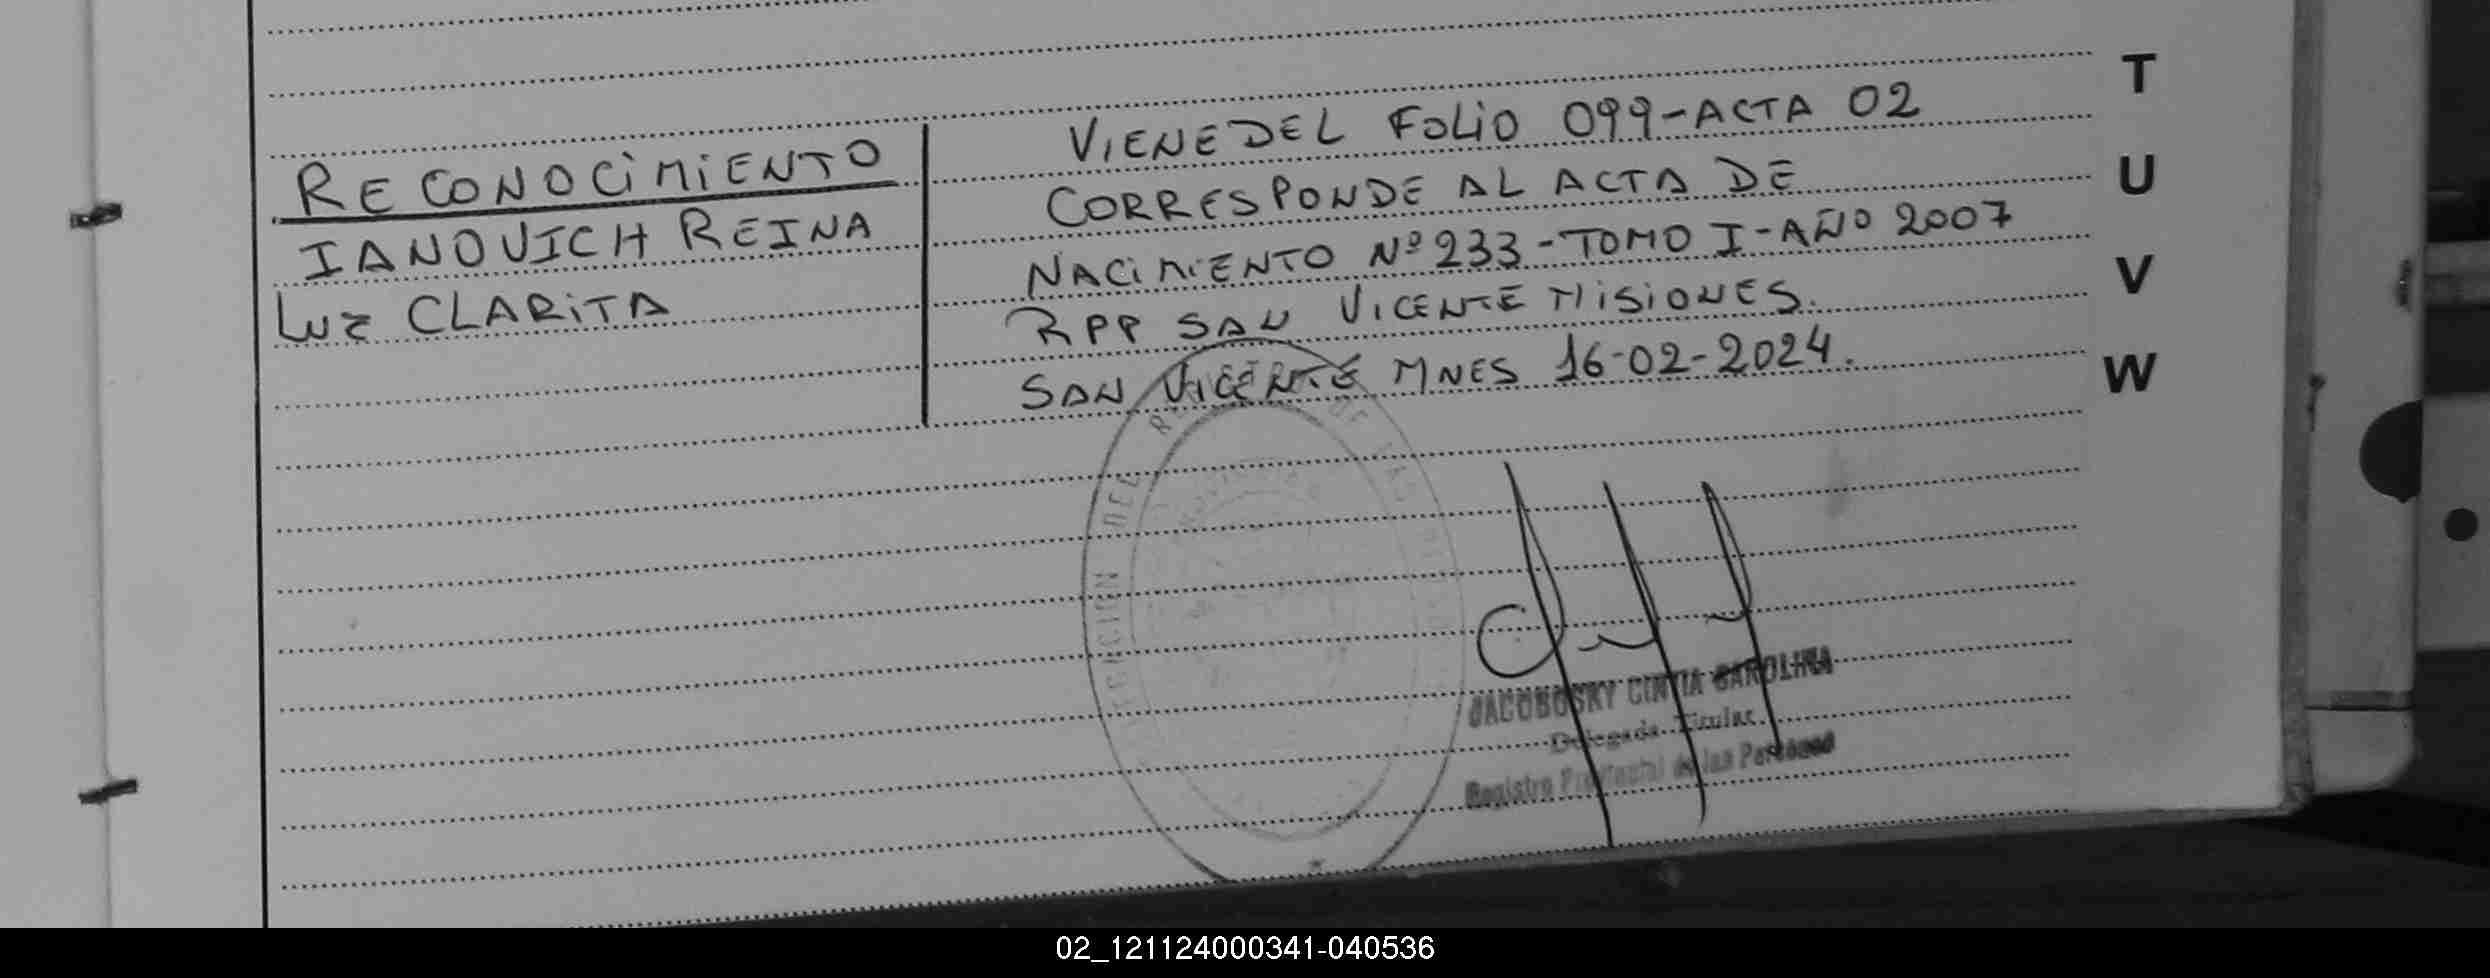 RECONOCIMIENTO
IANOVICH REINA
LUZ CLARITA
VIENE DEL FOLIO 099-ACTA 02
CORRESPONDE AL ACTA DE
NACIMIENTO Nº 233-TOMO I-AÑO 2007
RPP SAN VICENTE MISIONES.
SAN VICENTE MNES 16-02-2024.
T
U
V
W
DEL
DE LAS
JACOBOSKY CINTIA CAROLINA
Delegada Titular
Registro Provincial de las Personas
02_121124000341-040536